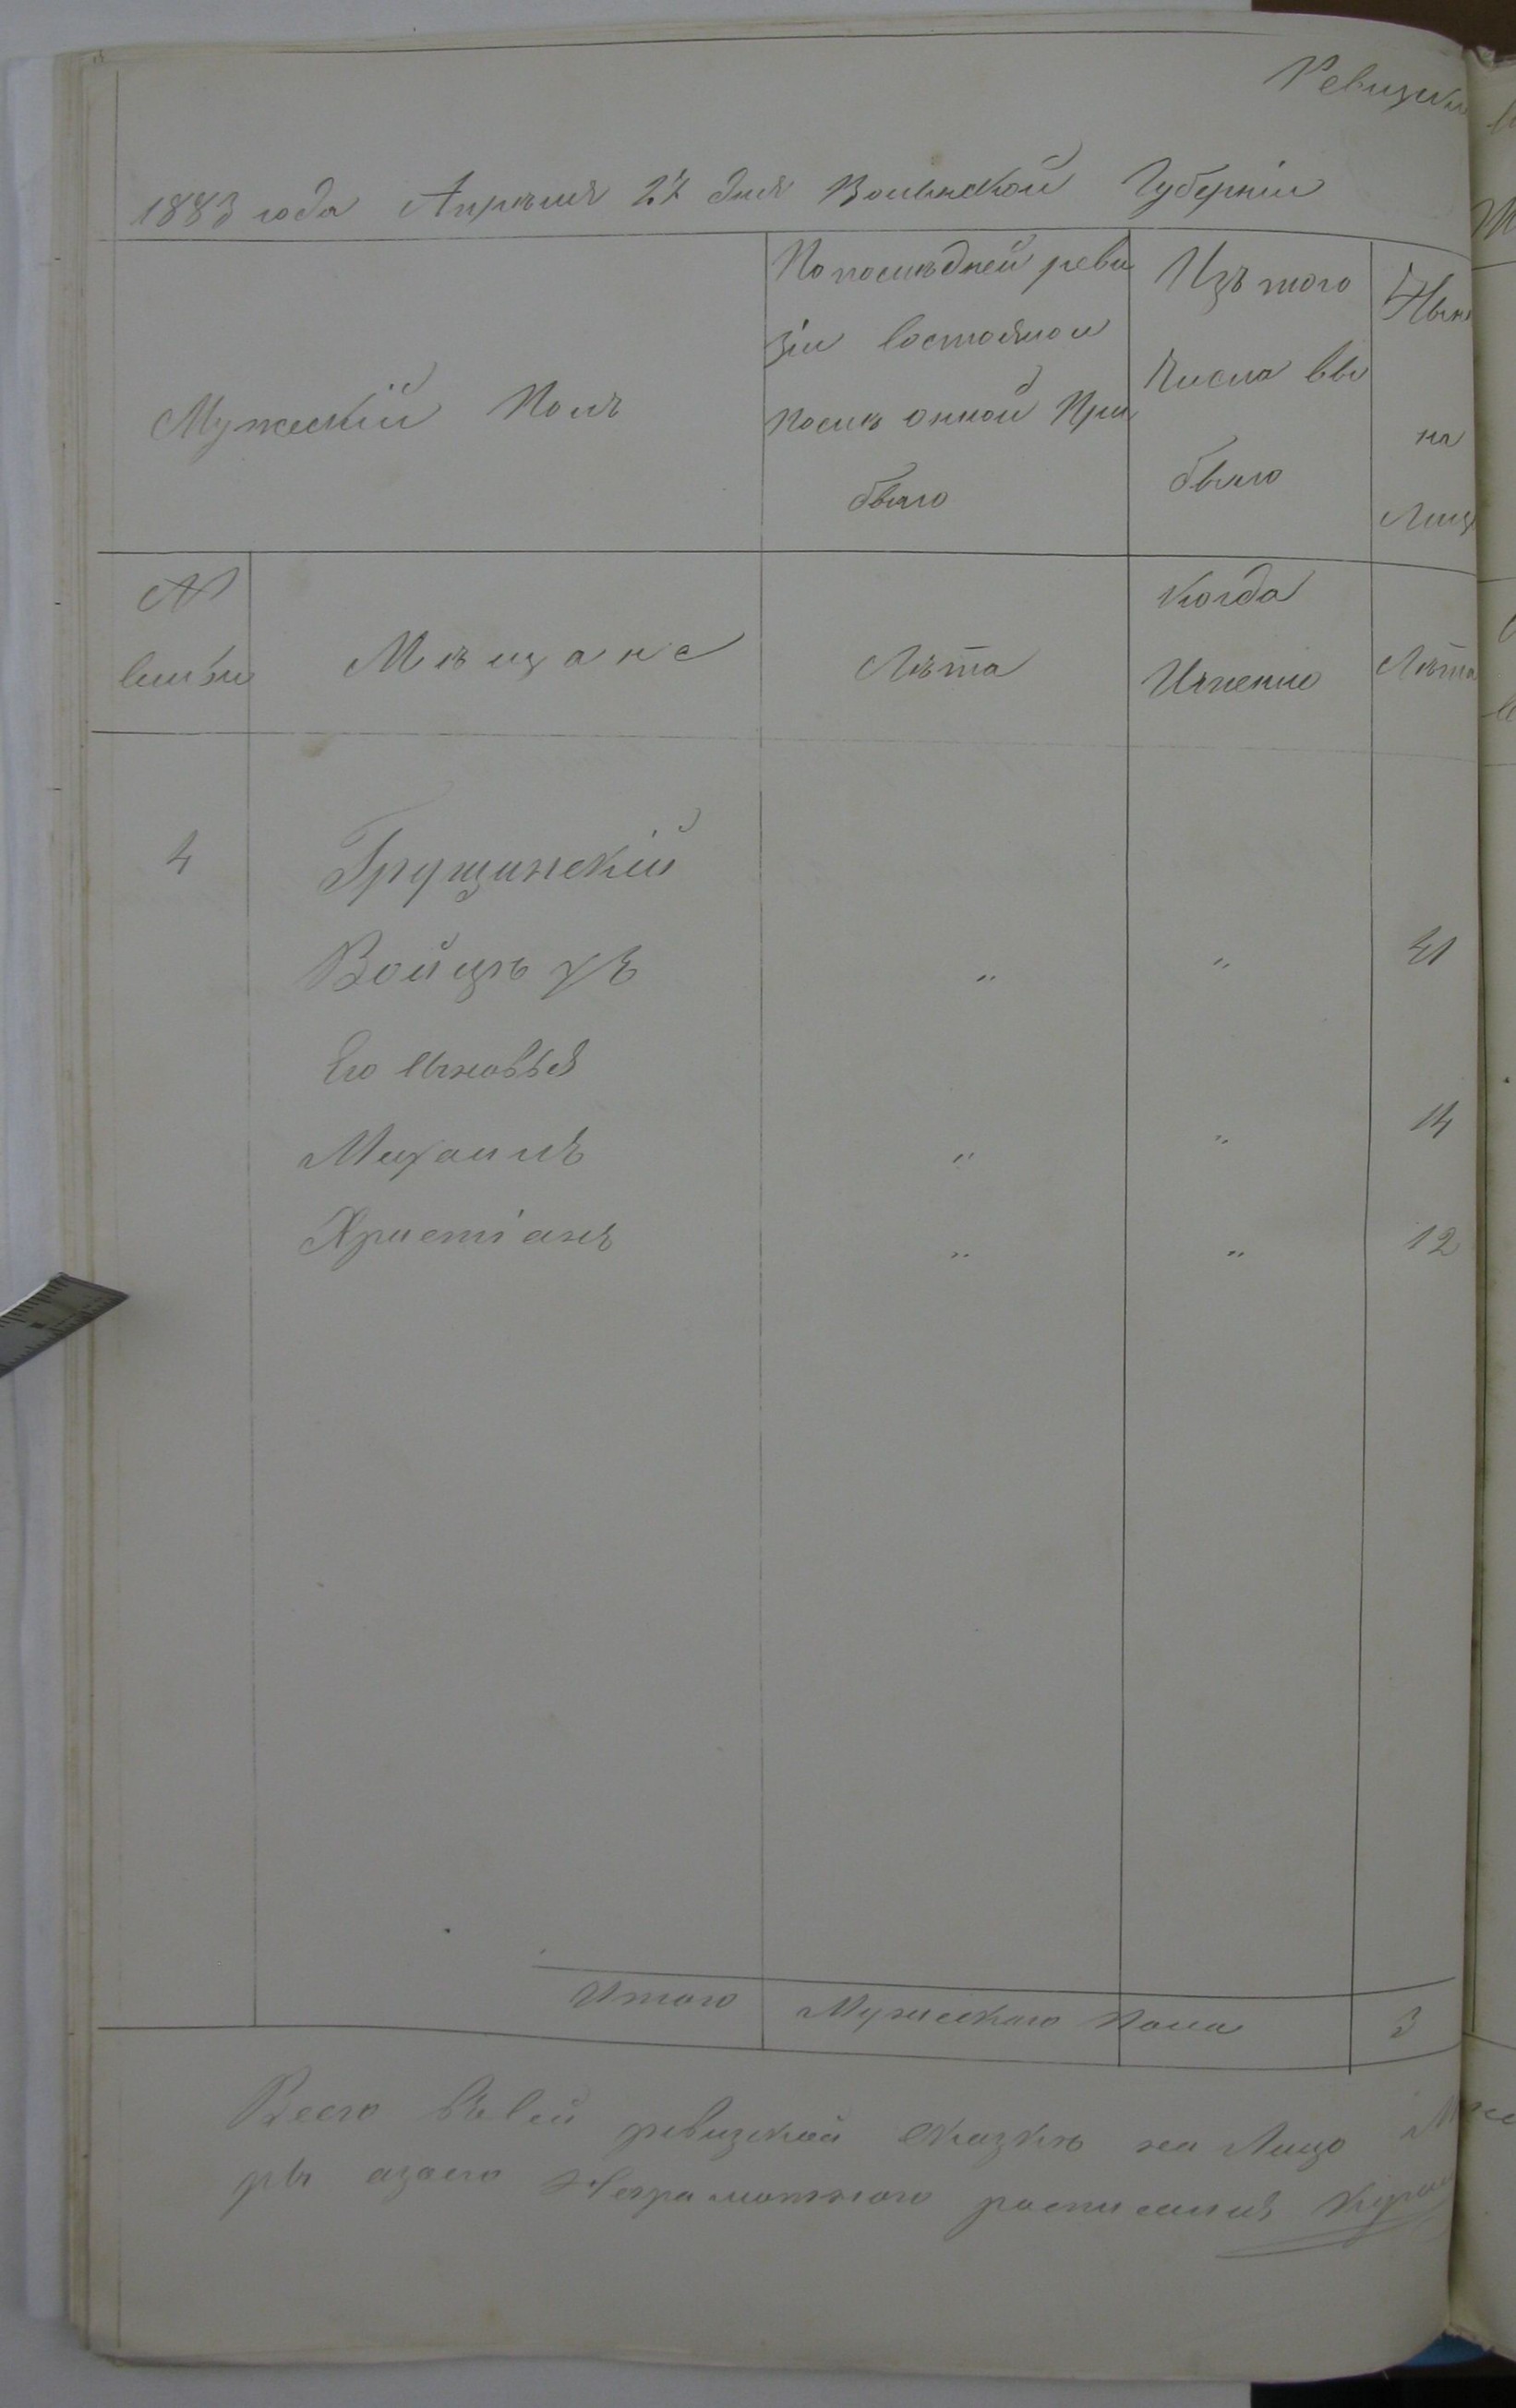 Ревизска
1883 года Апрѣля 27 дня Волынской Губерніи
Мужескій Полъ
По последней реви
зіи состояло и
послѣ онной при
было
Изъ того
числа вы
было
Нын
на
Лиц
№
семьи
Мѣщане
Лѣта
Когда
Именно
Лѣта
4 Грущинскій
Войцѣхъ " " 41
Его сыновья
Михаилъ " " 14
Христіанъ " " 12
Итого Мужескаго Пола 3
Всего в сей ревизской сказкѣ на Лицо
ръ а за его Неграмотного росписался